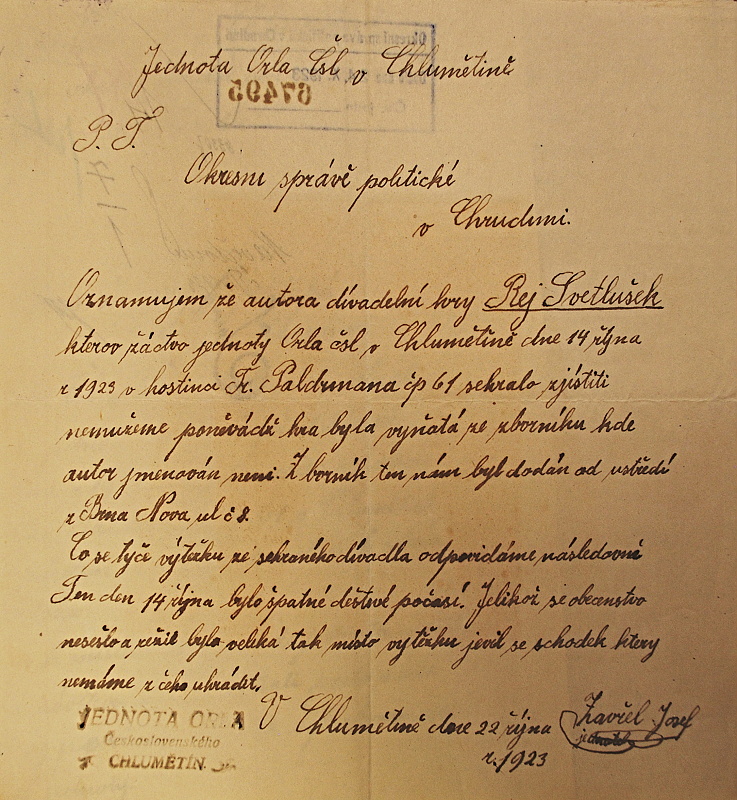 Jednota Orla Čsl. v Chlumětíně
67495
P. T.
Okresni správě politické
v Chrudimi.
Oznamujem že autora dívadelní hry Rej Svetlušek
kterov žáctvo jednoty Orla čsl. v Chlumětíně dne 14 října
r 1923 v hostinci Fr. Paldrmana čp 61 sehralo zjístiti
nemužeme poněvádž hra byla vyňatá ze zborníku kde
autor jmenován neni. Z borník ten nám byl dodán od ustředí
z Brna Nova ul č 8.
Co se tyče výtěžku ze sehraného dívadla odpovidáme následovně
Ten den 14 října bylo špatné deštivé počasí. Jelikož se obecenstvo
nesešlo a režie byla veliká tak místo vytěžku jevil se schodek ktery
nemáme z čeho uhrádit.
V Chlumětíně dne 22 října
r. 1923
Zavřel Josef
JEDNOTA ORLA
Československého
CHLUMĚTÍN